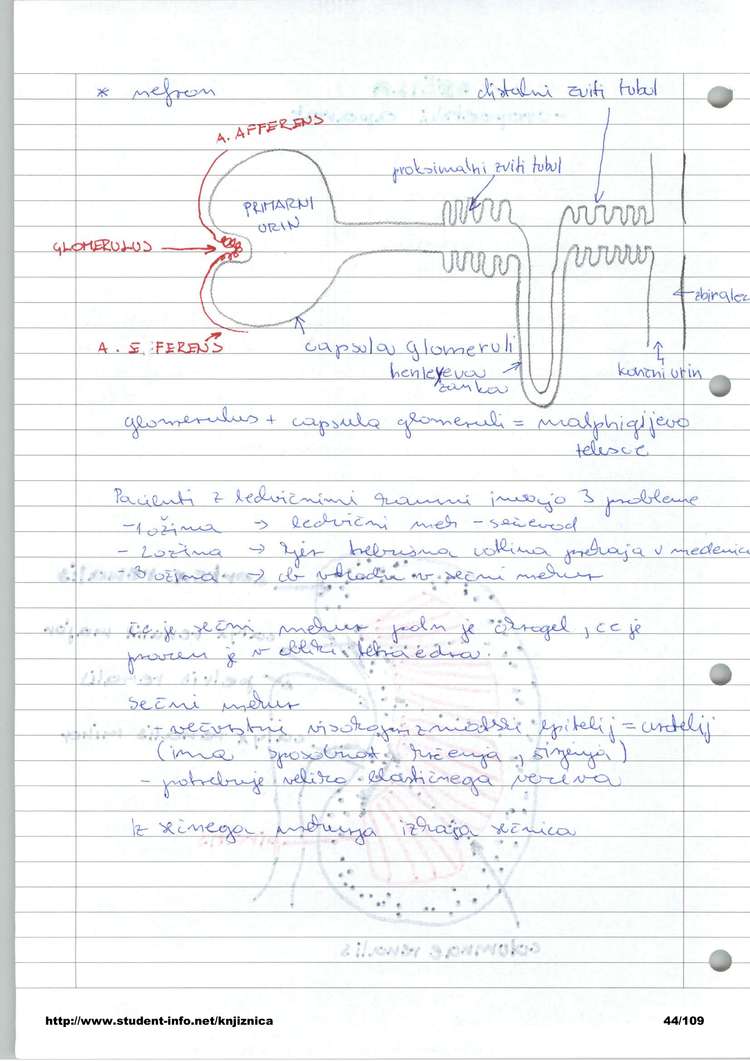 * nefron
distalni zviti tubul
A. AFFERENS
proksimalni zviti tubul
PRIMARNI
URIN
GLOMERULUS
zbiralež
A. E FERENS
capsula glomeruli
henleyeva
zanka
končni urin
glomerulus + capsula glomeruli = malphigijevo
telesce
Pacienti z ledvičnimi kamni imajo 3 probleme
- 1 ožina → ledvični meh - sečevod
- 2 ožina → kjer trebušna votlina prehaja v medenico
- 3 ožina → ob vhodu v sečni mehur
če je sečni mehur poln je okrogel, če je
prazen je v obliki tetraedra.
sečni mehur
- večvrstni visokoprizmatski epitelij = urotelij
(ima sposobnost krčenja, širjenja)
- potrebuje veliko elastičnega veziva
Iz sečnega mehurja izhaja sečnica
columnae renalis
http://www.student-info.net/knjiznica
44/109